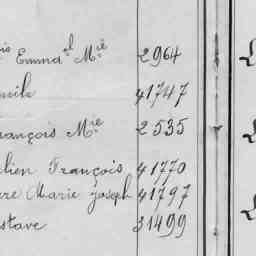 is Emmael Mre 2964
41747
rançois Mre 2535
lien François 41770
re Marie Joseph 41797
stave 31499